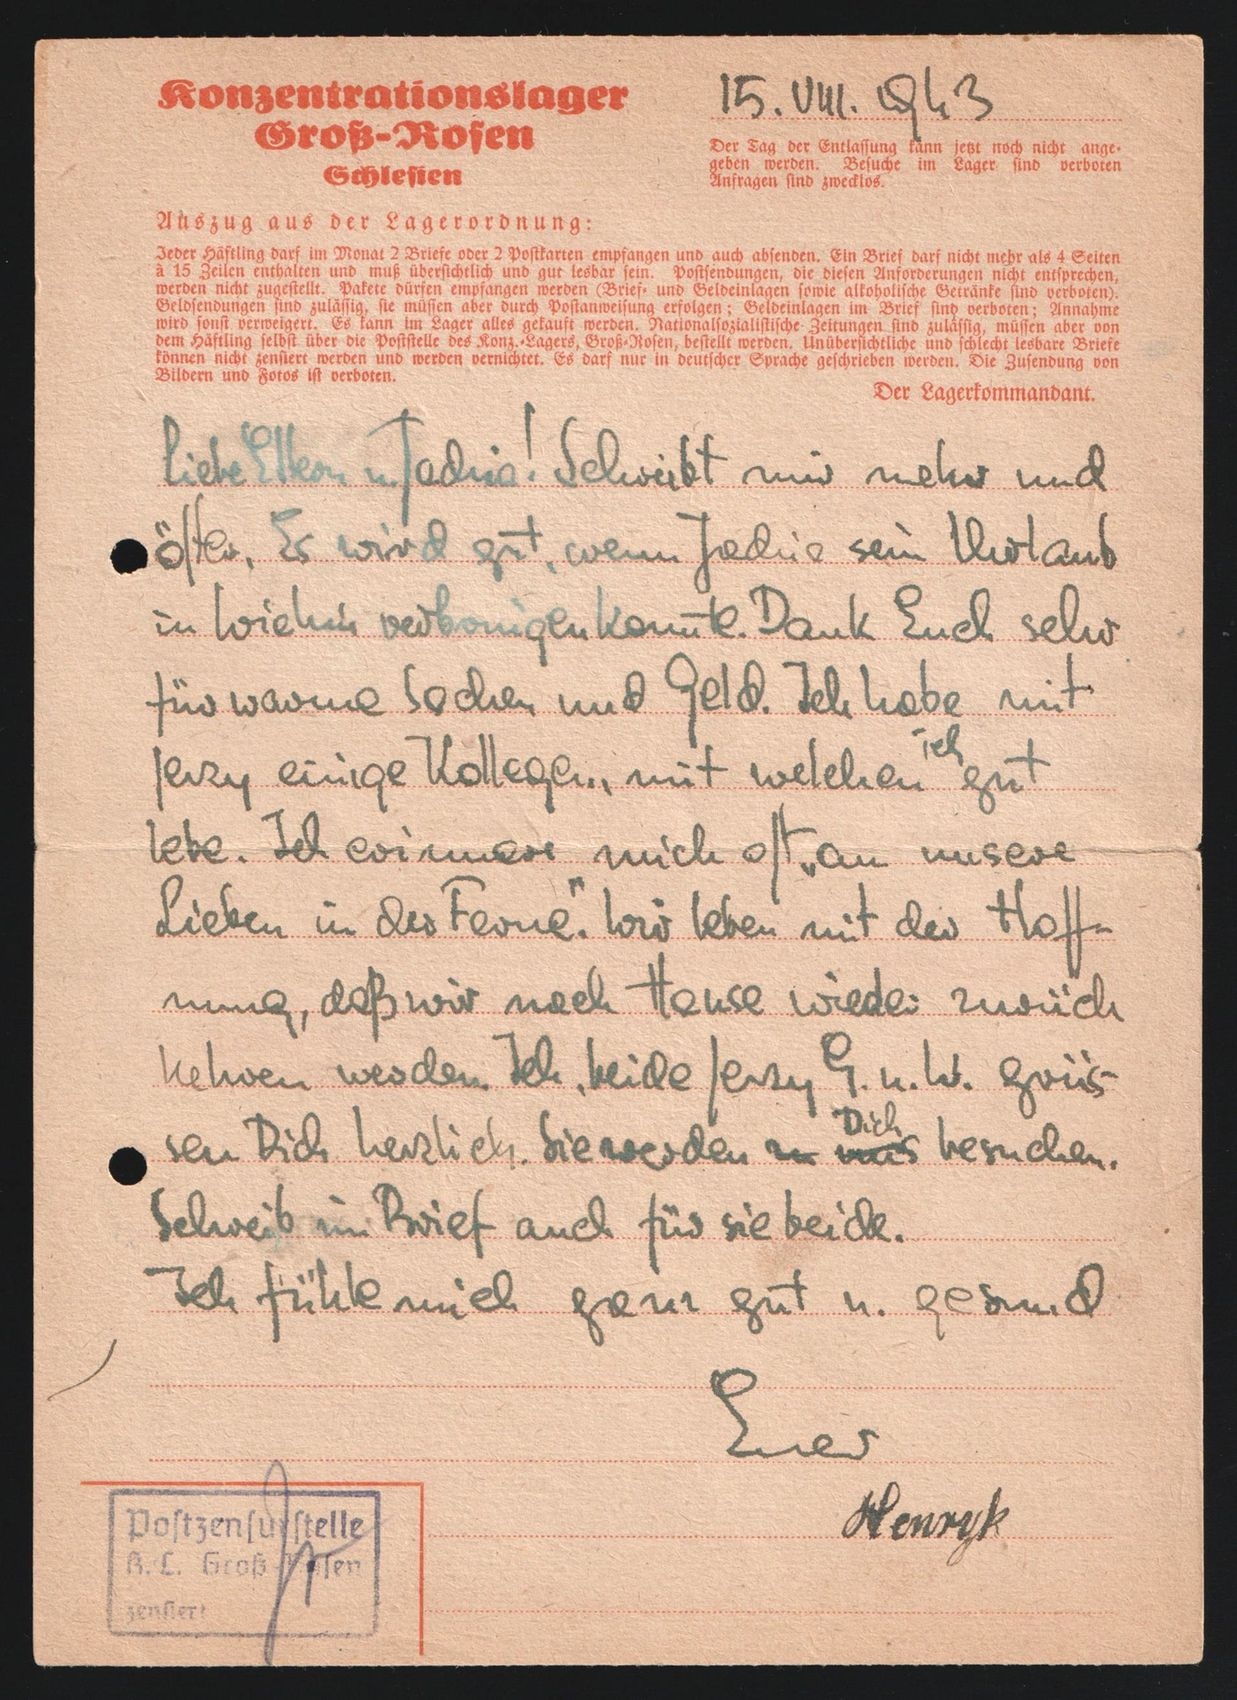 Konzentrationslager
Groß-Rosen
Schlesien
15. VIII. 1943
Der Tag der Entlassung kann jetzt noch nicht ange-
geben werden. Besuche im Lager sind verboten
Anfragen sind zwecklos.
Auszug aus der Lagerordnung:
Jeder Häftling darf im Monat 2 Briefe oder 2 Postkarten empfangen und auch absenden. Ein Brief darf nicht mehr als 4 Seiten
à 15 Zeilen enthalten und muß übersichtlich und gut lesbar sein. Postsendungen, die diesen Anforderungen nicht entsprechen,
werden nicht zugestellt. Pakete dürfen empfangen werden (Brief- und Geldeinlagen sowie alkoholische Getränke sind verboten).
Geldsendungen sind zulässig, sie müssen aber durch Postanweisung erfolgen; Geldeinlagen im Brief sind verboten; Annahme
wird sonst verweigert. Es kann im Lager alles gekauft werden. Nationalsozialistische Zeitungen sind zulässig, müssen aber von
dem Häftling selbst über die Poststelle des Konz.-Lagers, Groß-Rosen, bestellt werden. Unübersichtliche und schlecht lesbare Briefe
können nicht zensiert werden und werden vernichtet. Es darf nur in deutscher Sprache geschrieben werden. Die Zusendung von
Bildern und Fotos ist verboten.
Der Lagerkommandant.
Liebe Eltern u. Jadzia! Schreibt mir mehr und
öfter. Es wird gut, wenn Jadzia sein Uhrlaub
in verbringen konnte. Dank Euch sehr
für warme Sachen und Geld. Ich habe mit
Jerzy einige Kollegen, mit welchen ich gut
lebe. Ich erinnere mich oft „an unsere
Lieben in der Ferne". Wir leben mit der Hoff-
nung, daß wir nach Hause wieder zurück
kehren werden. Ich, beide Jerzy G. u. W. grüs-
sen Dich herzlich. Sie werden Dich besuchen.
Schreib im Brief auch für sie beide.
Ich fühle mich ganz gut u. gesund
Euer
Henryk
Postzensurstelle
K.L. Groß-Rosen
zensiert